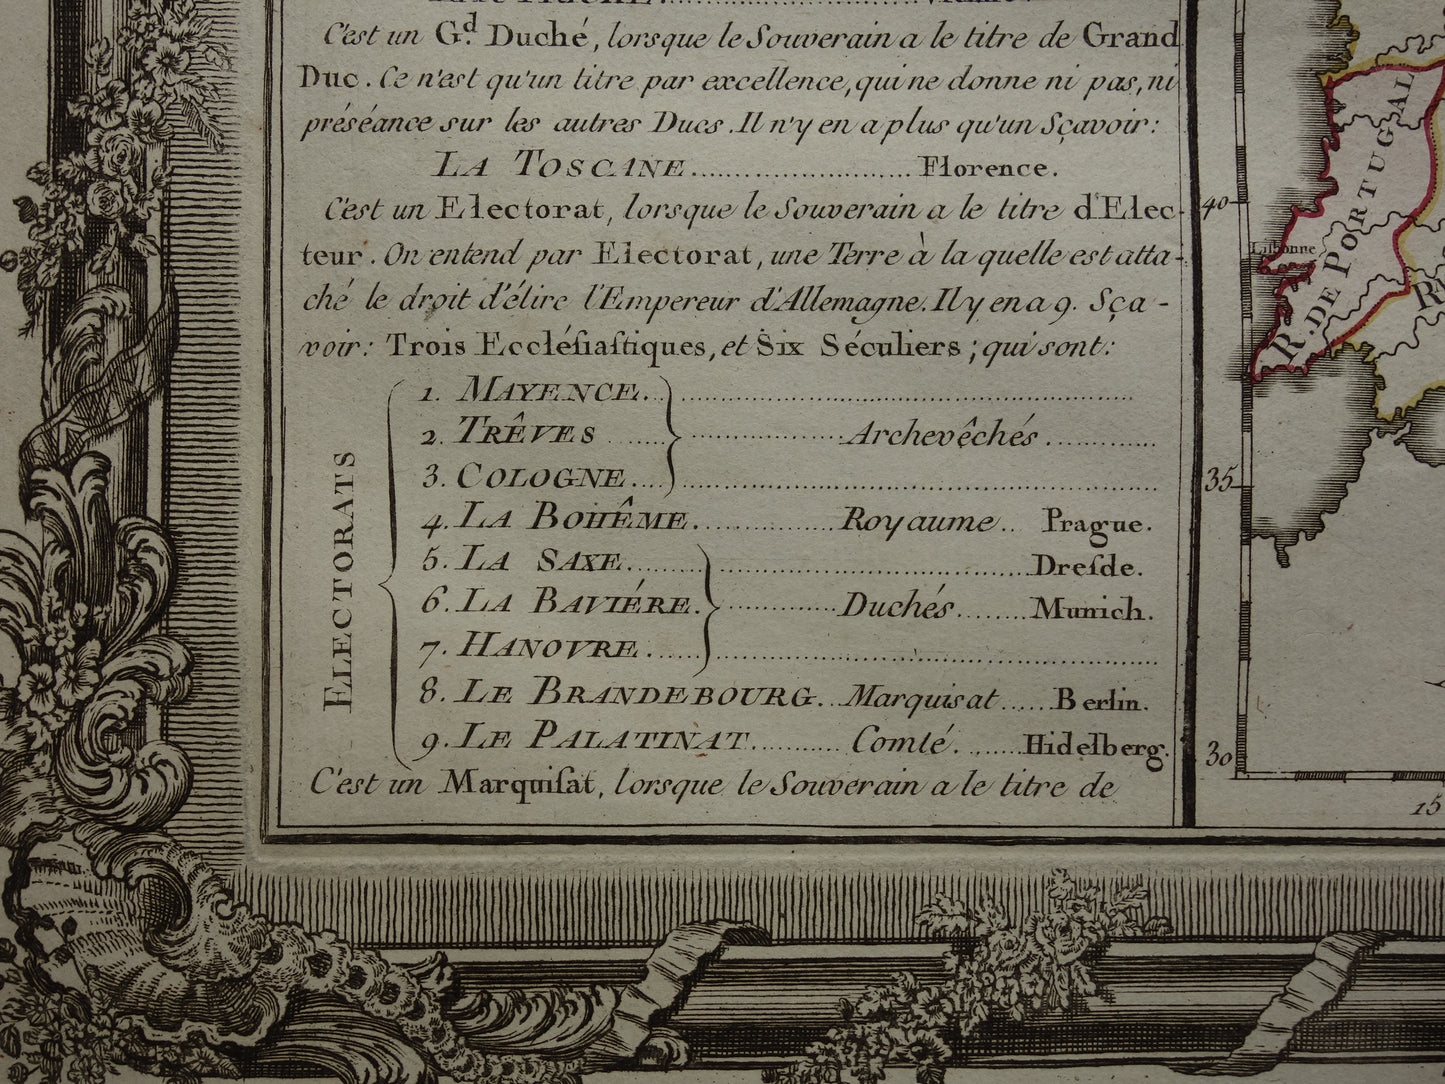 C'est un G.d Duché, lorsque le Souverain a le titre de Grand
Duc. Ce n'est qu'un titre par excellence, qui ne donne ni pas, ni
préséance sur les autres Ducs. Il n'y en a plus qu'un Sçavoir:
LA TOSCANE........................ Florence.
C'est un Electorat, lorsque le Souverain a le titre d'Elec-
teur. On entend par Electorat, une Terre à la quelle est atta-
ché le droit d'élire l'Empereur d'Allemagne. Il y en a 9. Sça-
voir: Trois Ecclésiastiques, et Six Séculiers; qui sont:
ELECTORATS
1. MAYENCE.
2. TRÊVES ...... Archevêchés
3. COLOGNE.
4. LA BOHÊME. ...... Royaume.. Prague.
5. LA SAXE. ...... Dresde.
6. LA BAVIÉRE. ...... Duchés...... Munich.
7. HANOVRE.
8. LE BRANDEBOURG. . Marquisat..... Berlin.
9. LE PALATINAT. ...... Comté....... Hidelberg.
C'est un Marquisat, lorsque le Souverain a le titre de
R. DE PORTUGAL
Lisbonne
40
35
30
15